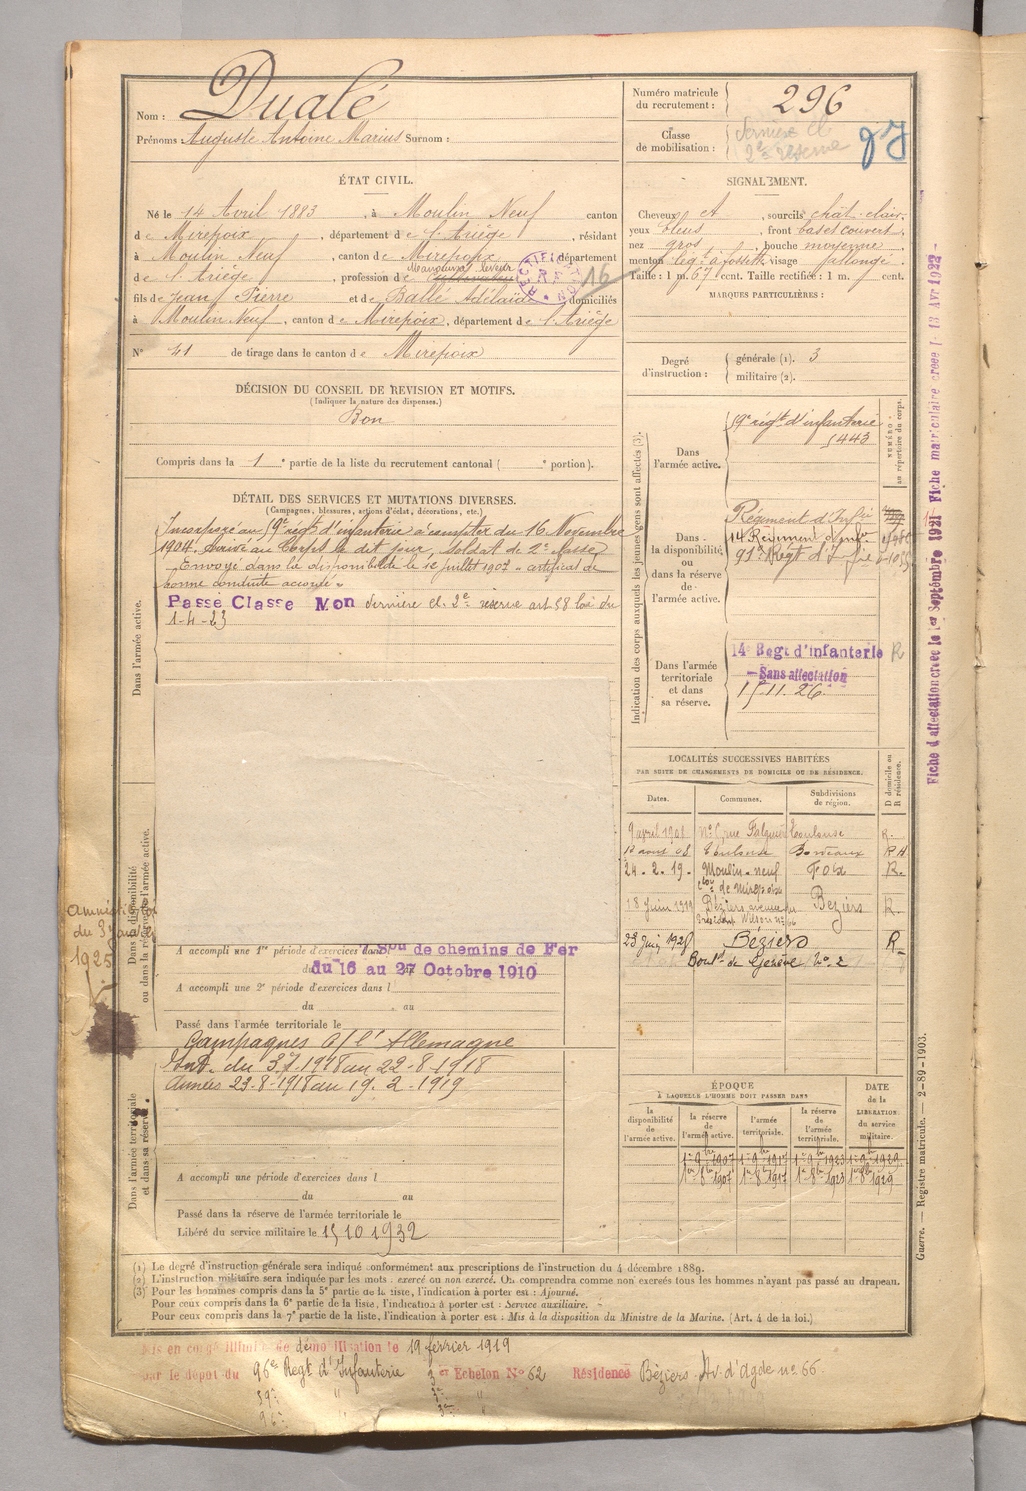 Nom : Dualé
Prénoms : Auguste Antoine Marius Surnom :
Numéro matricule du recrutement : 296
Classe de mobilisation : dernière cl. 2e réserve
ÉTAT CIVIL.
Né le 14 Avril 1883, à Moulin Neuf canton
de Mirepoix, département de l'Ariège, résidant
à Moulin Neuf, canton de Mirepoix, département
de l'Ariège, profession de cultivateur
RECTIFICATION
16
fils de Jean Pierre et de Ballé Adélaïde domiciliés
à Moulin Neuf, canton de Mirepoix, département de l'Ariège
N° 41 de tirage dans le canton de Mirepoix
SIGNALEMENT.
Cheveux et, sourcils chât-clair.
yeux bleus, front bas et couvert,
nez gros, bouche moyenne,
menton lég. à fossette, visage allongé.
Taille : 1 m. 67 cent. Taille rectifiée : 1 m. cent.
MARQUES PARTICULIÈRES :
Degré d'instruction : générale (1). 3
militaire (2).
DÉCISION DU CONSEIL DE REVISION ET MOTIFS.
(Indiquer la nature des dispenses.)
Bon
Compris dans la 1e partie de la liste du recrutement cantonal ( e portion).
DÉTAIL DES SERVICES ET MUTATIONS DIVERSES.
(Campagnes, blessures, actions d'éclat, décorations, etc.)
Incorporé au régt d'infanterie à compter du 16 Novembre
1904. Arrivé au Corps le dit jour, Soldat de 2e classe
Envoyé dans la disponibilité le 12 juillet 1907 - certificat de
bonne conduite accordé -
Passé Classe Mon dernière cl. 2e réserve art 58 loi du
1-4-23
Dans l'armée active.
Dans la disponibilité ou dans la réserve de l'armée active.
du 3 1925
A accompli une 1re période d'exercices dans de chemins de Fer
du 16 au 27 Octobre 1910
A accompli une 2e période d'exercices dans l
du au
Passé dans l'armée territoriale le
Campagnes c/ l'Allemagne
Int. du 3.7.1918 au 22-8-1918
Armées 23-8-1918 au 19-2-1919
Dans l'armée territoriale et dans sa réserve.
A accompli une période d'exercices dans l
du au
Passé dans la réserve de l'armée territoriale le
Libéré du service militaire le 15 10 1932
Indication des corps auxquels les jeunes gens sont affectés (3).
NUMÉRO au répertoire du corps.
Dans l'armée active. régt d'infanterie 5443
Dans la disponibilité ou dans la réserve de l'armée active.
Régiment d'Infie
14 Régiment
Dans l'armée territoriale et dans sa réserve.
14e Regt d'infanterie R
Sans affectation
15.11.26
LOCALITÉS SUCCESSIVES HABITÉES
PAR SUITE DE CHANGEMENTS DE DOMICILE OU DE RÉSIDENCE.
Dates. Communes. Subdivisions de région. D domicile ou R résidence.
9 avril 1908 rue Falguière Toulouse R.
12 aout 08 Toulouse Bordeaux R H
24-2-19- Moulin-neuf Foix R.
18 Juin 1919 Béziers avenue du Président Wilson 66 Beziers R.
23 Juin 1925 Béziers R
Boulrd de Genève No 2
ÉPOQUE
À LAQUELLE L'HOMME DOIT PASSER DANS
DATE de la LIBÉRATION du service militaire.
la disponibilité de l'armée active. la réserve de l'armée active. l'armée territoriale. la réserve de l'armée territoriale.
1er 9bre 1907 1er 9bre 1917 1er 9bre 1923 1er 9bre 1929
1er 8bre 1907 1er 8bre 1917 1er 8bre 1923 1er 8bre 1929
(1) Le degré d'instruction générale sera indiqué conformément aux prescriptions de l'instruction du 4 décembre 1889.
(2) L'instruction militaire sera indiquée par les mots : exercé ou non exercé. On comprendra comme non exercés tous les hommes n'ayant pas passé au drapeau.
(3) Pour les hommes compris dans la 5e partie de la liste, l'indication à porter est : Ajourné.
Pour ceux compris dans la 6e partie de la liste, l'indication à porter est : Service auxiliaire.
Pour ceux compris dans la 7e partie de la liste, l'indication à porter est : Mis à la disposition du Ministre de la Marine. (Art. 4 de la loi.)
Mis en congé illimité de démobilisation le 19 février 1919
par le dépôt du 96e Regt d'Infanterie Echelon No 62 Résidence Béziers Av. d'Agde no 66
Fiche d'affectation créée le 1er Septembre 1921 Fiche matriculaire créée l 13 Avr 1922
Guerre. — Registre matricule. — 2-89-1903.